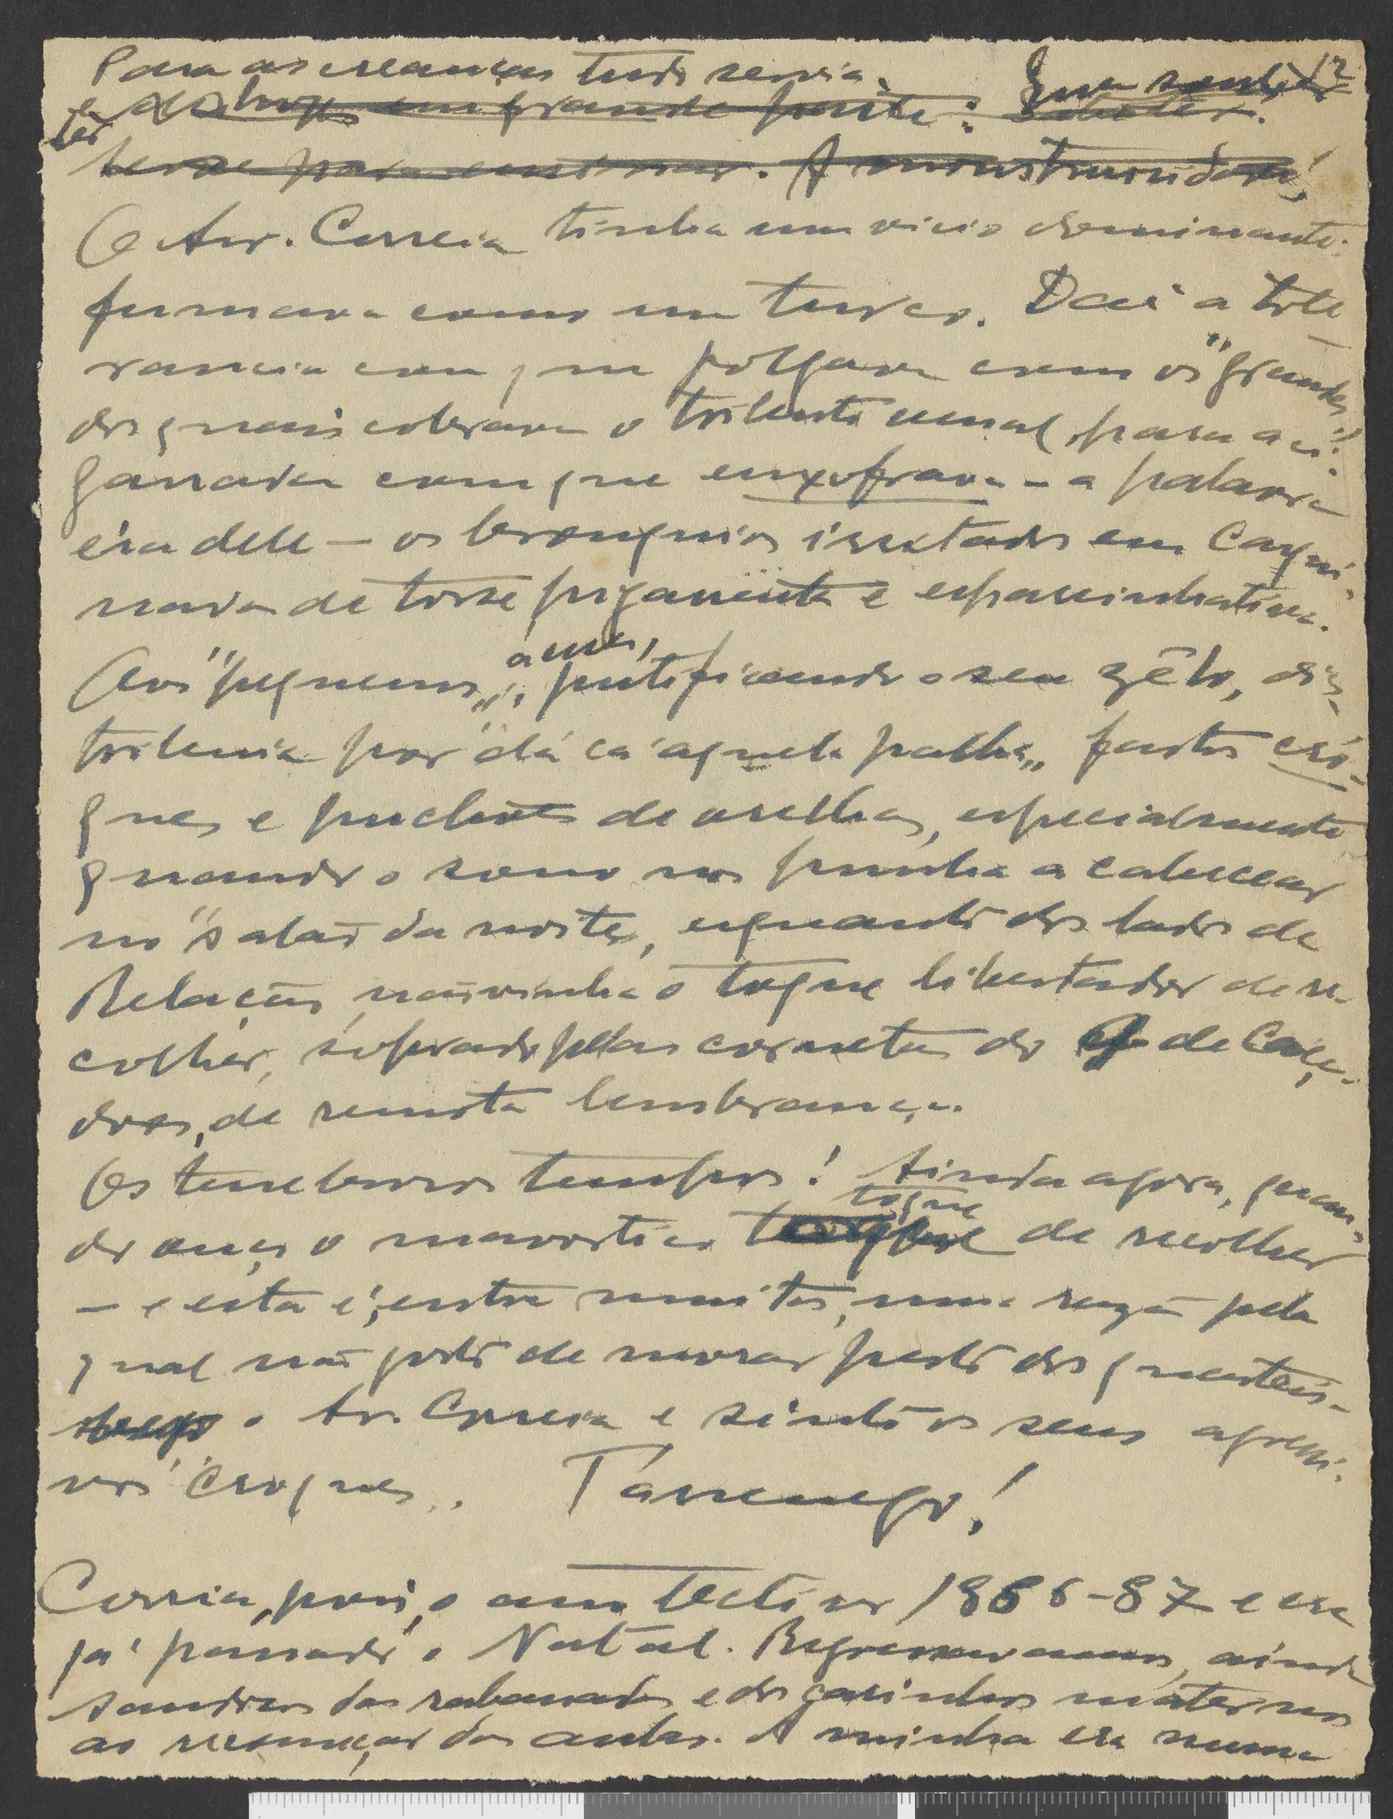 Para as creanças tudo servia.
12
O Snr. Correia tinha um vicio dominante:
fumava como um turco. Daí a tole-
rancia com que folgava com os "grandes"
dos quais cobrava o tributo para a ci-
garrada com que enxofrava - a palavra
éra dele - os bronquios irritados em caqui-
nada de tosse pigarrenta e
Aos "pequenos", a esses, justificando o seu zêlo, dis-
tribuia por "dá cá aquela palha" fartos cró-
ques e puchões de orelhas, especialmente
quando o sono nos punha a cabecear
no "salão da noite", enquanto dos lados da
Relação não vinha o toque libertador de re-
colher, soprado pelas cornetas do 9 de Caça-
dores, de remota lembrança.
Os tenebrosos tempos! Ainda agora, quan-
do ouço o mavortico toque de recolher
- e esta é, entre muitas, uma razão pela
qual não gosto de morar perto dos quarteis -
o Snr. Correia e sinto os seus agressi-
vos "croques". T'arrenego!
Corria, pois, o ano lectivo 1886-87 e era
já passado o Natal. Regressavamos, ainda
saudosos das rabanadas e dos carinhos maternos
ao recomeçar das aulas. A minha era numa